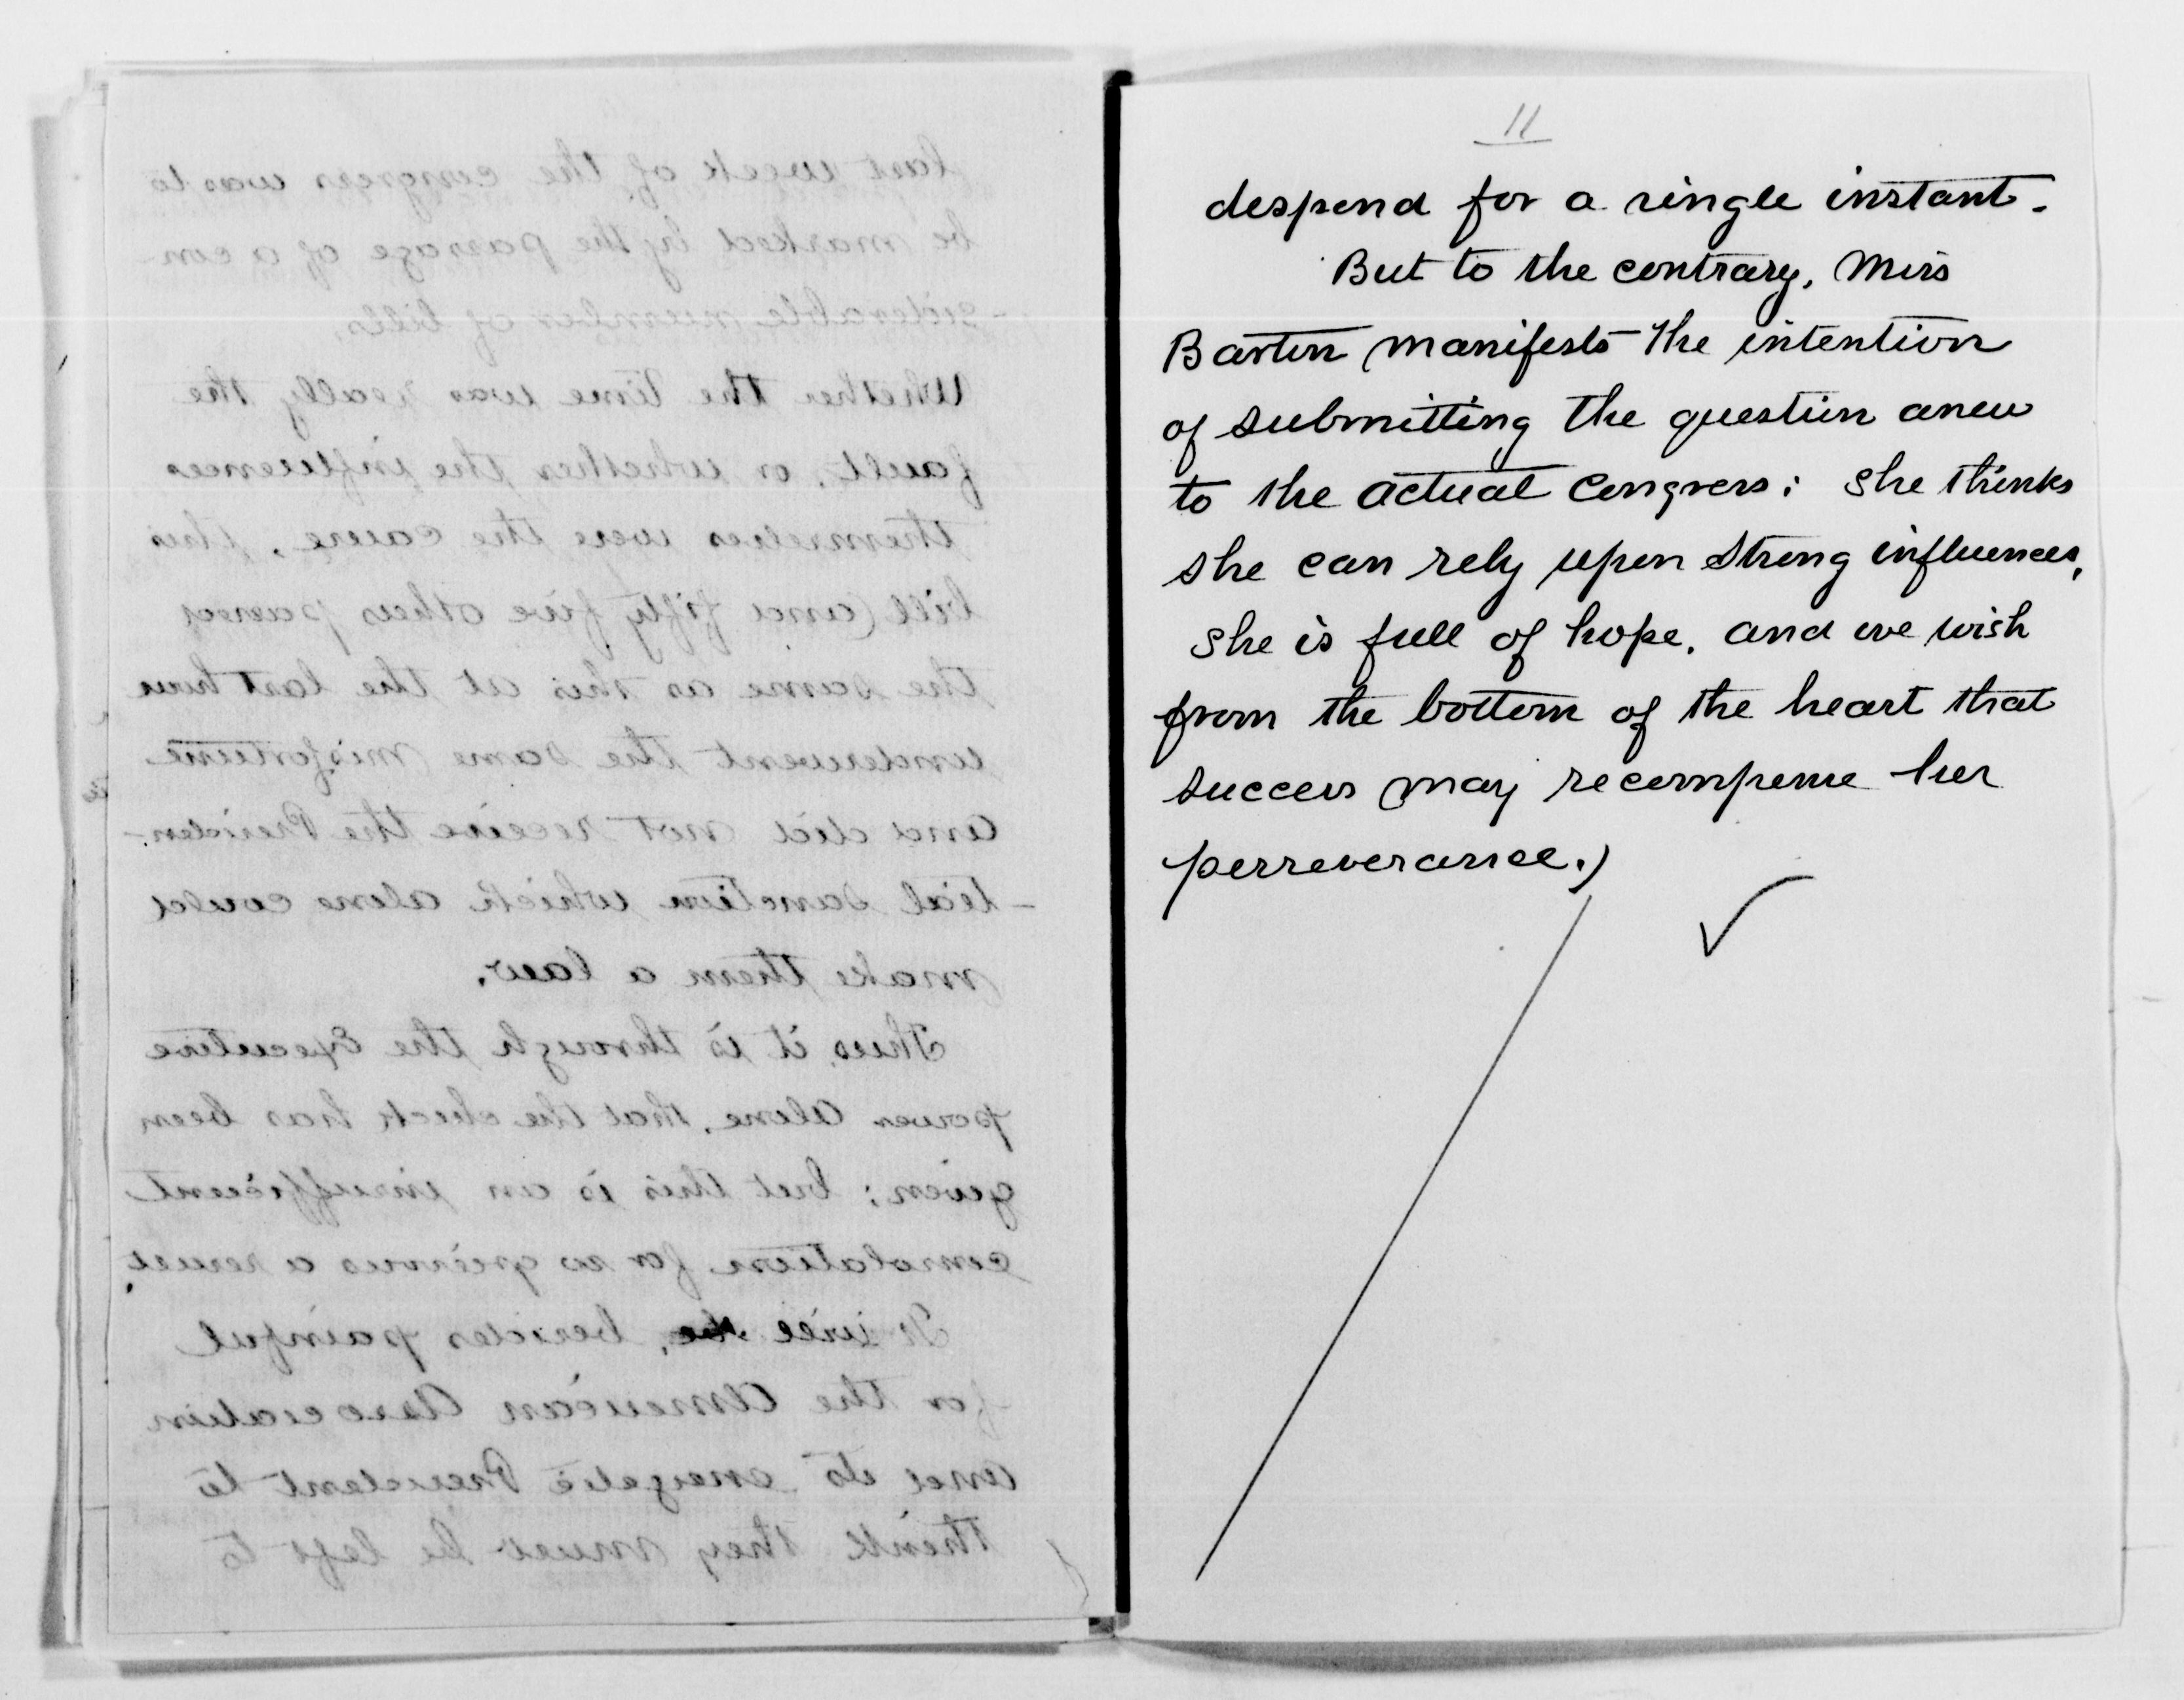 last week of the congress was to
be marked by the passage of a con-
-siderable number of bills.
Whether the time was really the
fault, or whether the influences
themselves were the cause, this
bill (and fifty five others passed
the same as this at the last hour
underwent the same misfortune
and did not receive the Presiden-
-tial sanction which alone could
make them a law.
Thus, it is through the Executive
power alone, that the check has been
given; but this is an insufficient
consolation for so grievous a result.
It will be, besides painful
for the American Association
and its energetic President to
think they must be left to
11
despond for a single instant.
But to the contrary, Miss
Barton manifests the intention
of submitting the question anew
to the actual Congress; she thinks
she can rely upon strong influences,
she is full of hope, and we wish
from the bottom of the heart that
success may recompense her
perseverance.)